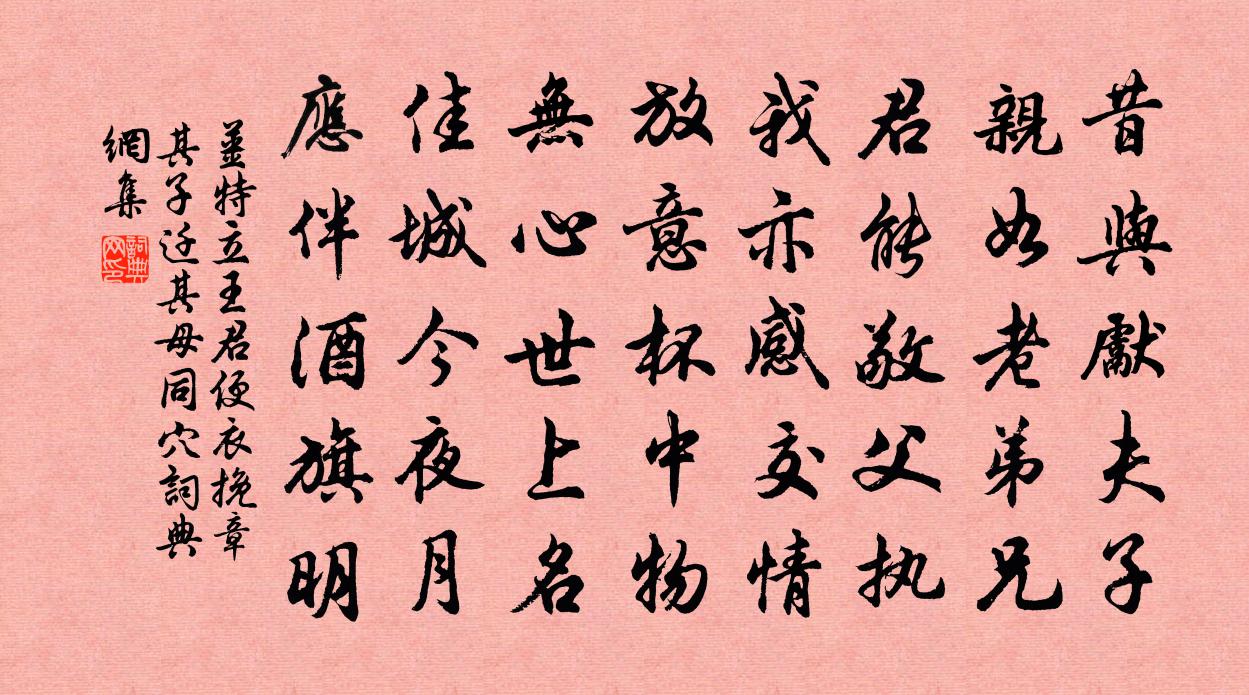 昔與獻夫子
親如老弟兄
君能敬父执
我亦感交情
放意杯中物
無心世上名
佳城今夜月
應伴酒旗明
姜特立王君便衣挽章
其子迁其母同穴詞典
網集
詞典網印